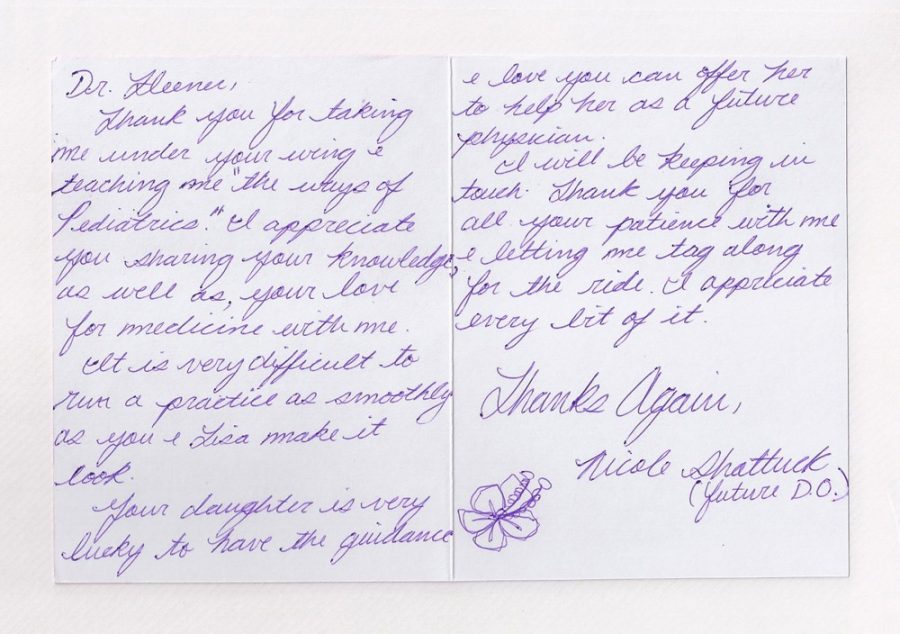 Dr. Kleener,
Thank you for taking
me under your wing &
teaching me "the ways of
Pediatrics." I appreciate
you sharing your knowledge,
as well as, your love
for medicine with me.
It is very difficult to
run a practice as smoothly
as you & Lisa make it
look.
Your daughter is very
lucky to have the guidance
& love you can offer her
to help her as a future
physician.
I will be keeping in
touch. Thank you for
all your patience with me
& letting me tag along
for the ride. I appriciate
every bit of it.
Thanks Again,
Nicole Shattuck
(future D.O.)